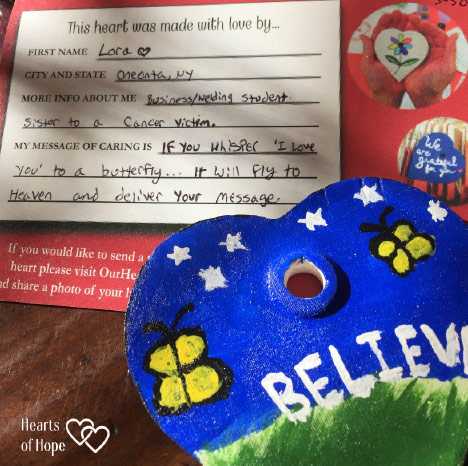 This heart was made with love by...
FIRST NAME Lora
CITY AND STATE Oneonta, NY
MORE INFO ABOUT ME Business/Welding student.
Sister to a Cancer victim.
MY MESSAGE OF CARING IS If you whisper 'I love
you' to a butterfly... it will fly to
Heaven and deliver your message.
We
are
grateful
for you
If you would like to send a
heart please visit OurHe
nd share a photo of your h
BELIEV
Hearts
of Hope